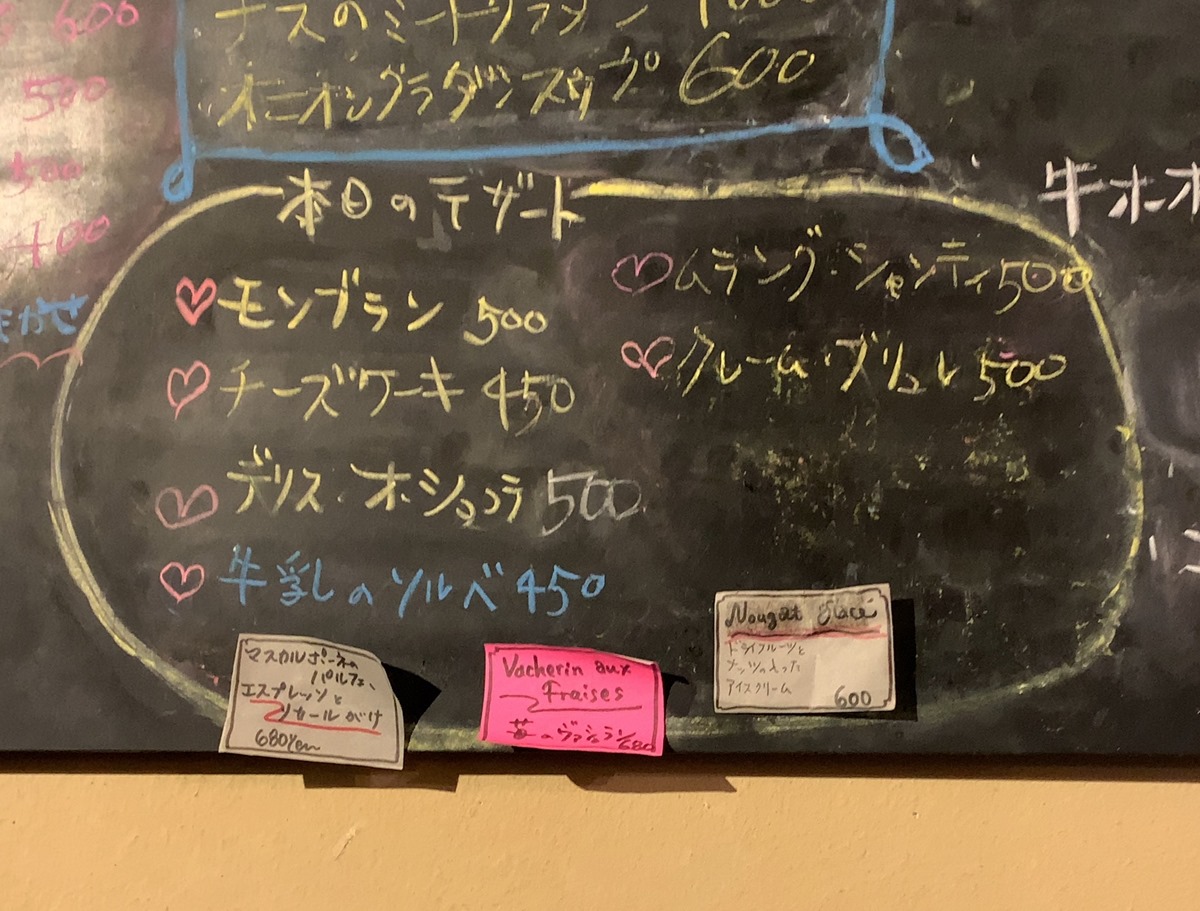 600
500
500
400
まかせ
ナスのミートグラタン
オニオングラタンスープ 600
牛ホホ
本日のデザート
モンブラン 500
チーズケーキ 450
デリス・オ・ショコラ 500
牛乳のソルベ 450
ムラング・シャンティ 500
クレーム・ブリュレ 500
マスカルポーネの
パルフェ、
エスプレッソと
リキュールがけ
680Yen
Vacherin aux
Fraises
苺のヴァシュラン 680
Nougat Glacé
ドライフルーツと
ナッツの入った
アイスクリーム
600